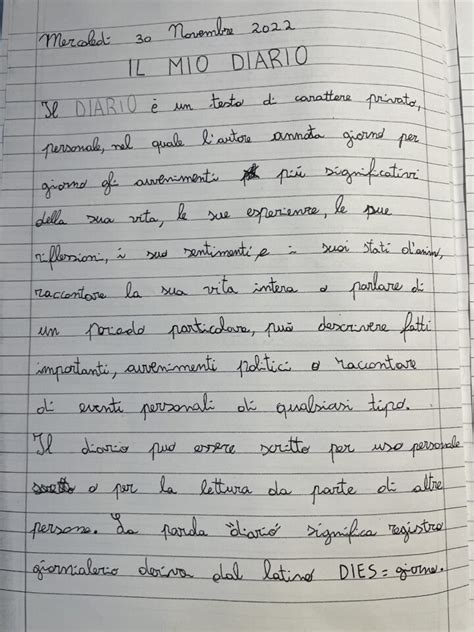 Mercoledì 30 Novembre 2022
IL MIO DIARIO
Il DIARIO è un testo di carattere privato,
personale, nel quale l'autore annota giorno per
giorno gli avvenimenti più significativi
della sua vita, le sue esperienze, le sue
riflessioni, i suo sentimenti, e i suoi stati d'animo,
raccontare la sua vita intera o parlare di
un periodo particolare, può descrivere fatti
importanti, avvenimenti politici o raccontare
di eventi personali di qualsiasi tipo.
Il diario può essere scritto per uso personale
o per la lettura da parte di altre
persone. La parola "diario" significa registro
giornaliero deriva dal latino DIES = giorno.